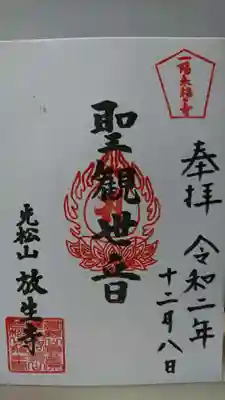 一陽来福之寺
奉拝 令和二年
十二月八日
聖観世音
光松山 放生寺